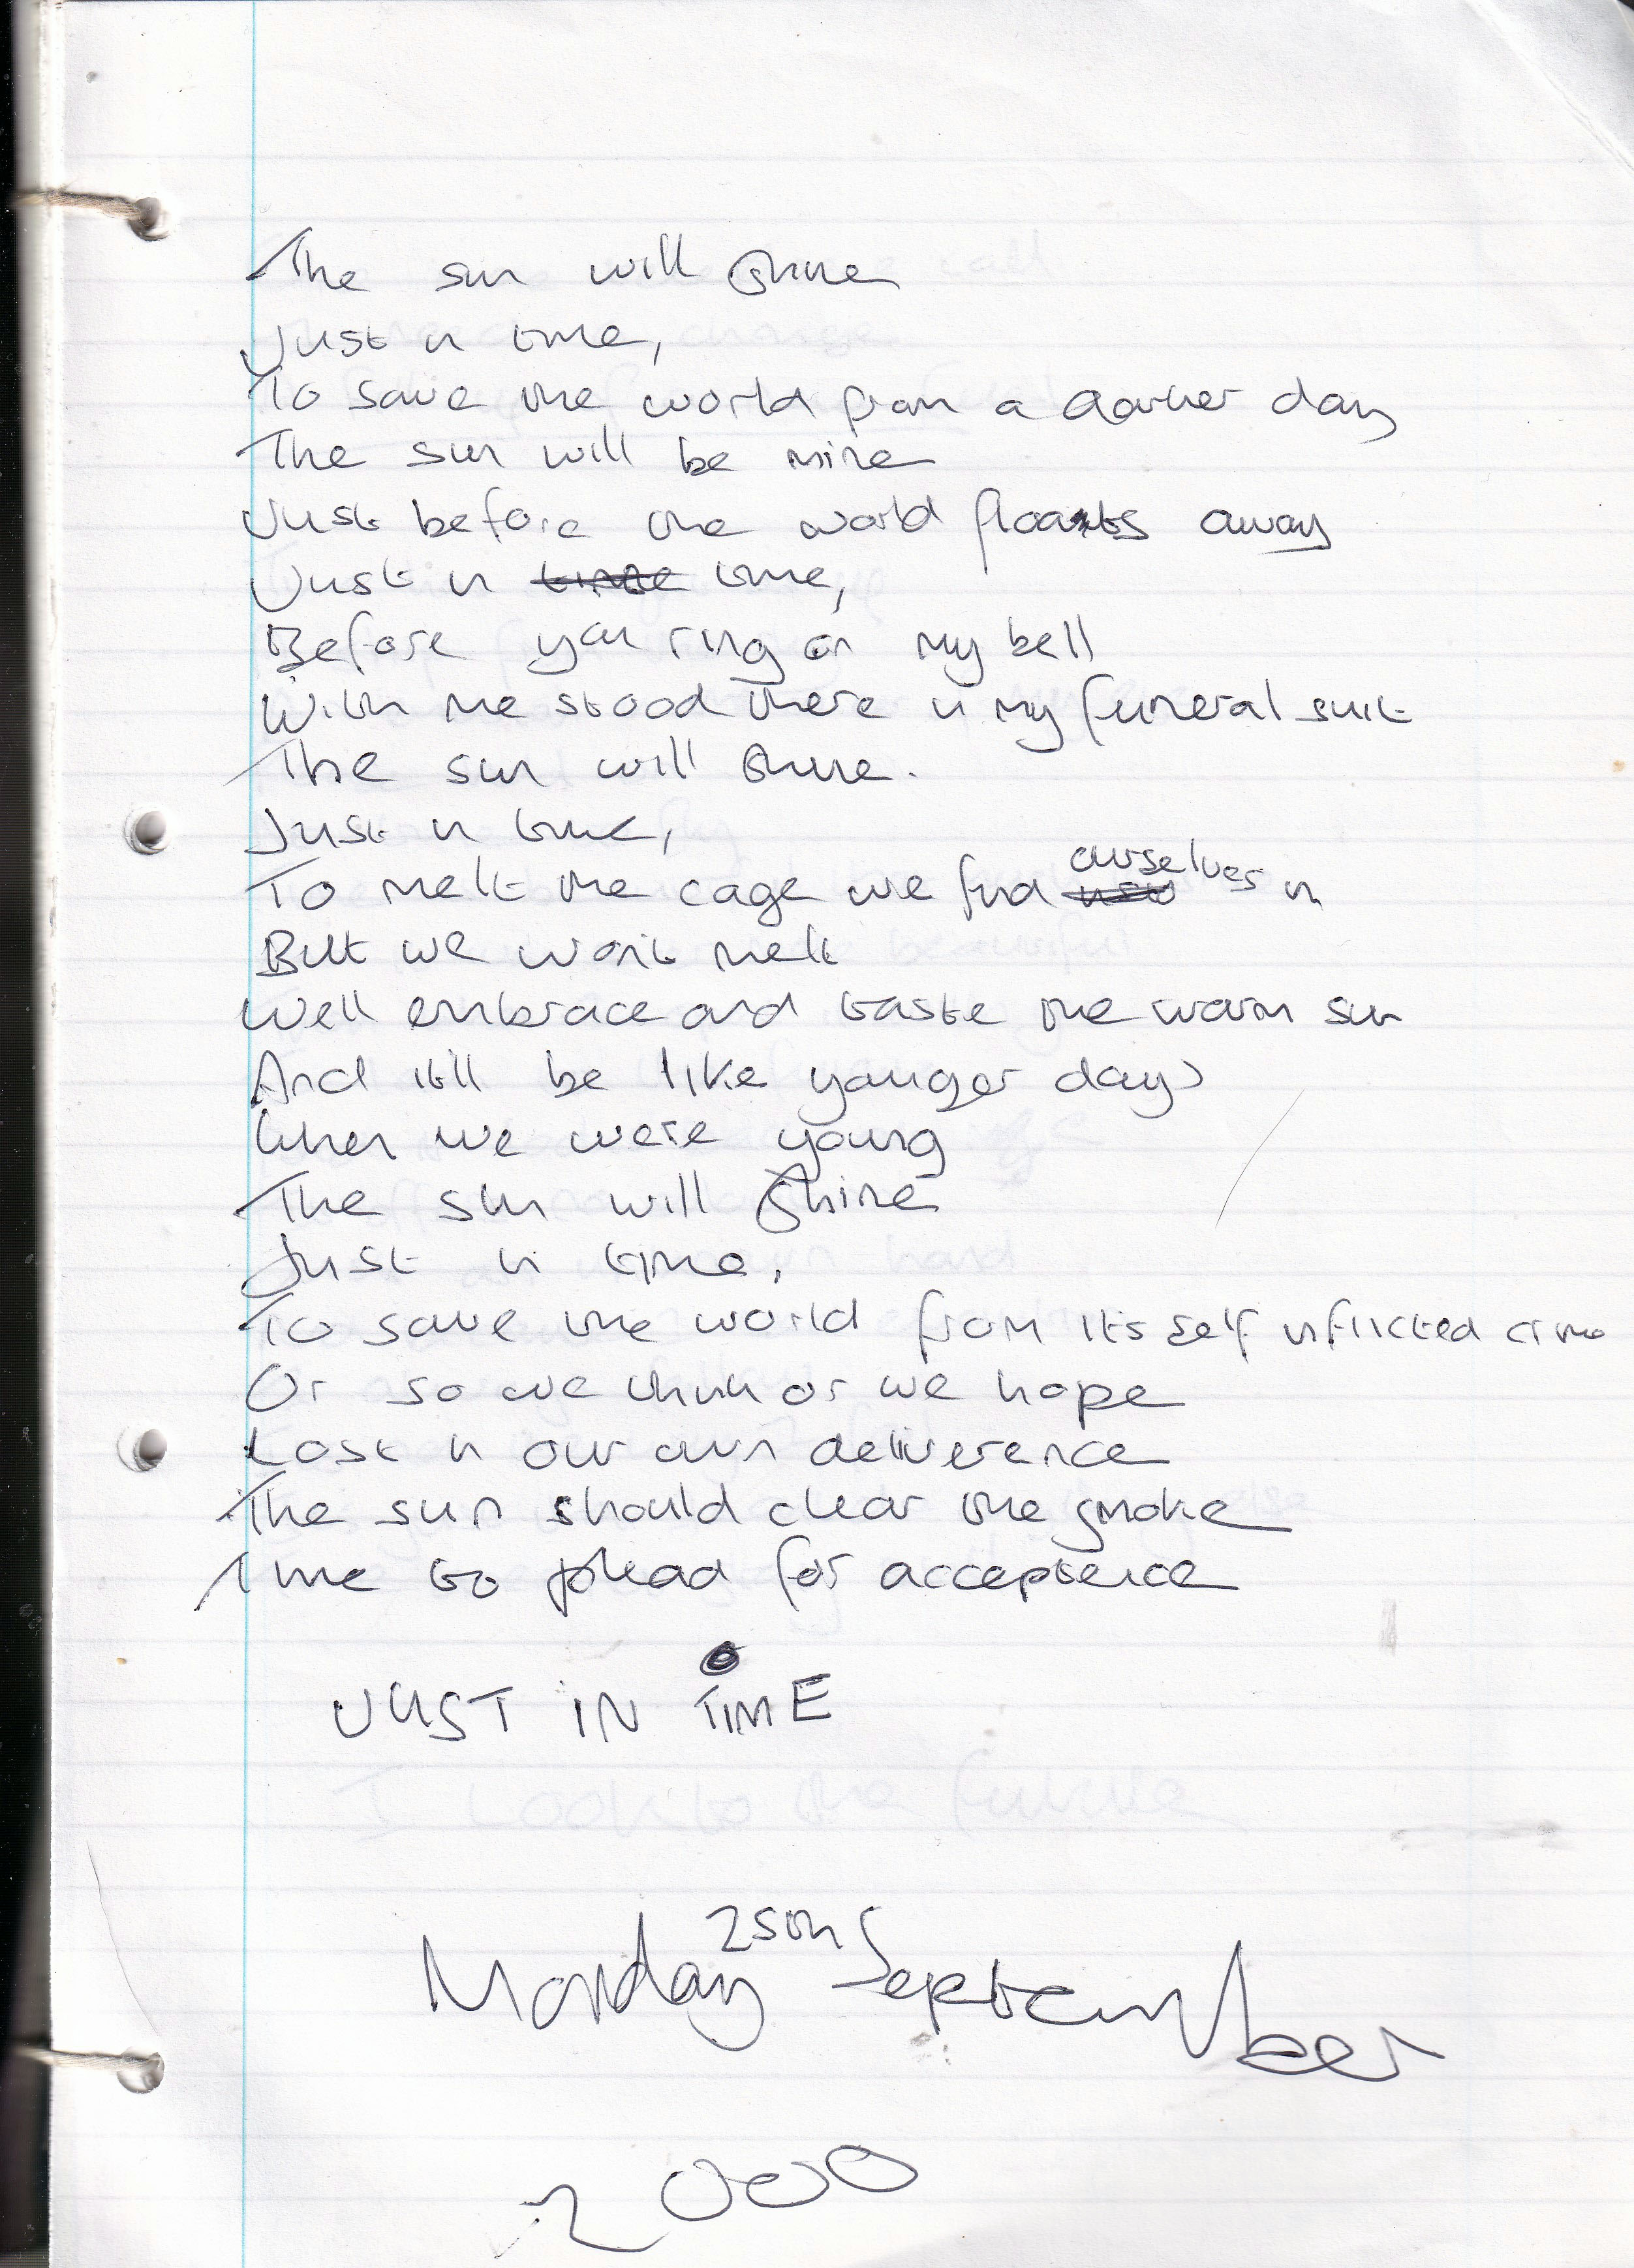 The sun will shine
Just in time,
To save the world from a darker day
The sun will be mine
Just before the world floats away
Just in time time,
Before you ring on my bell
With me stood there in my funeral suit
The sun will shine.
Just in time,
To melt the cage we find ourselves in
But we won't melt
We'll embrace and taste the warm sun
And it'll be like younger days
When we were young
The sun will shine
Just in time,
To save the world from its self inflicted crime
Or so we think or we hope
Lost in our own deliverence
The sun should clear the smoke
Time to plead for acceptence
JUST IN TIME
Monday 25th September
2000